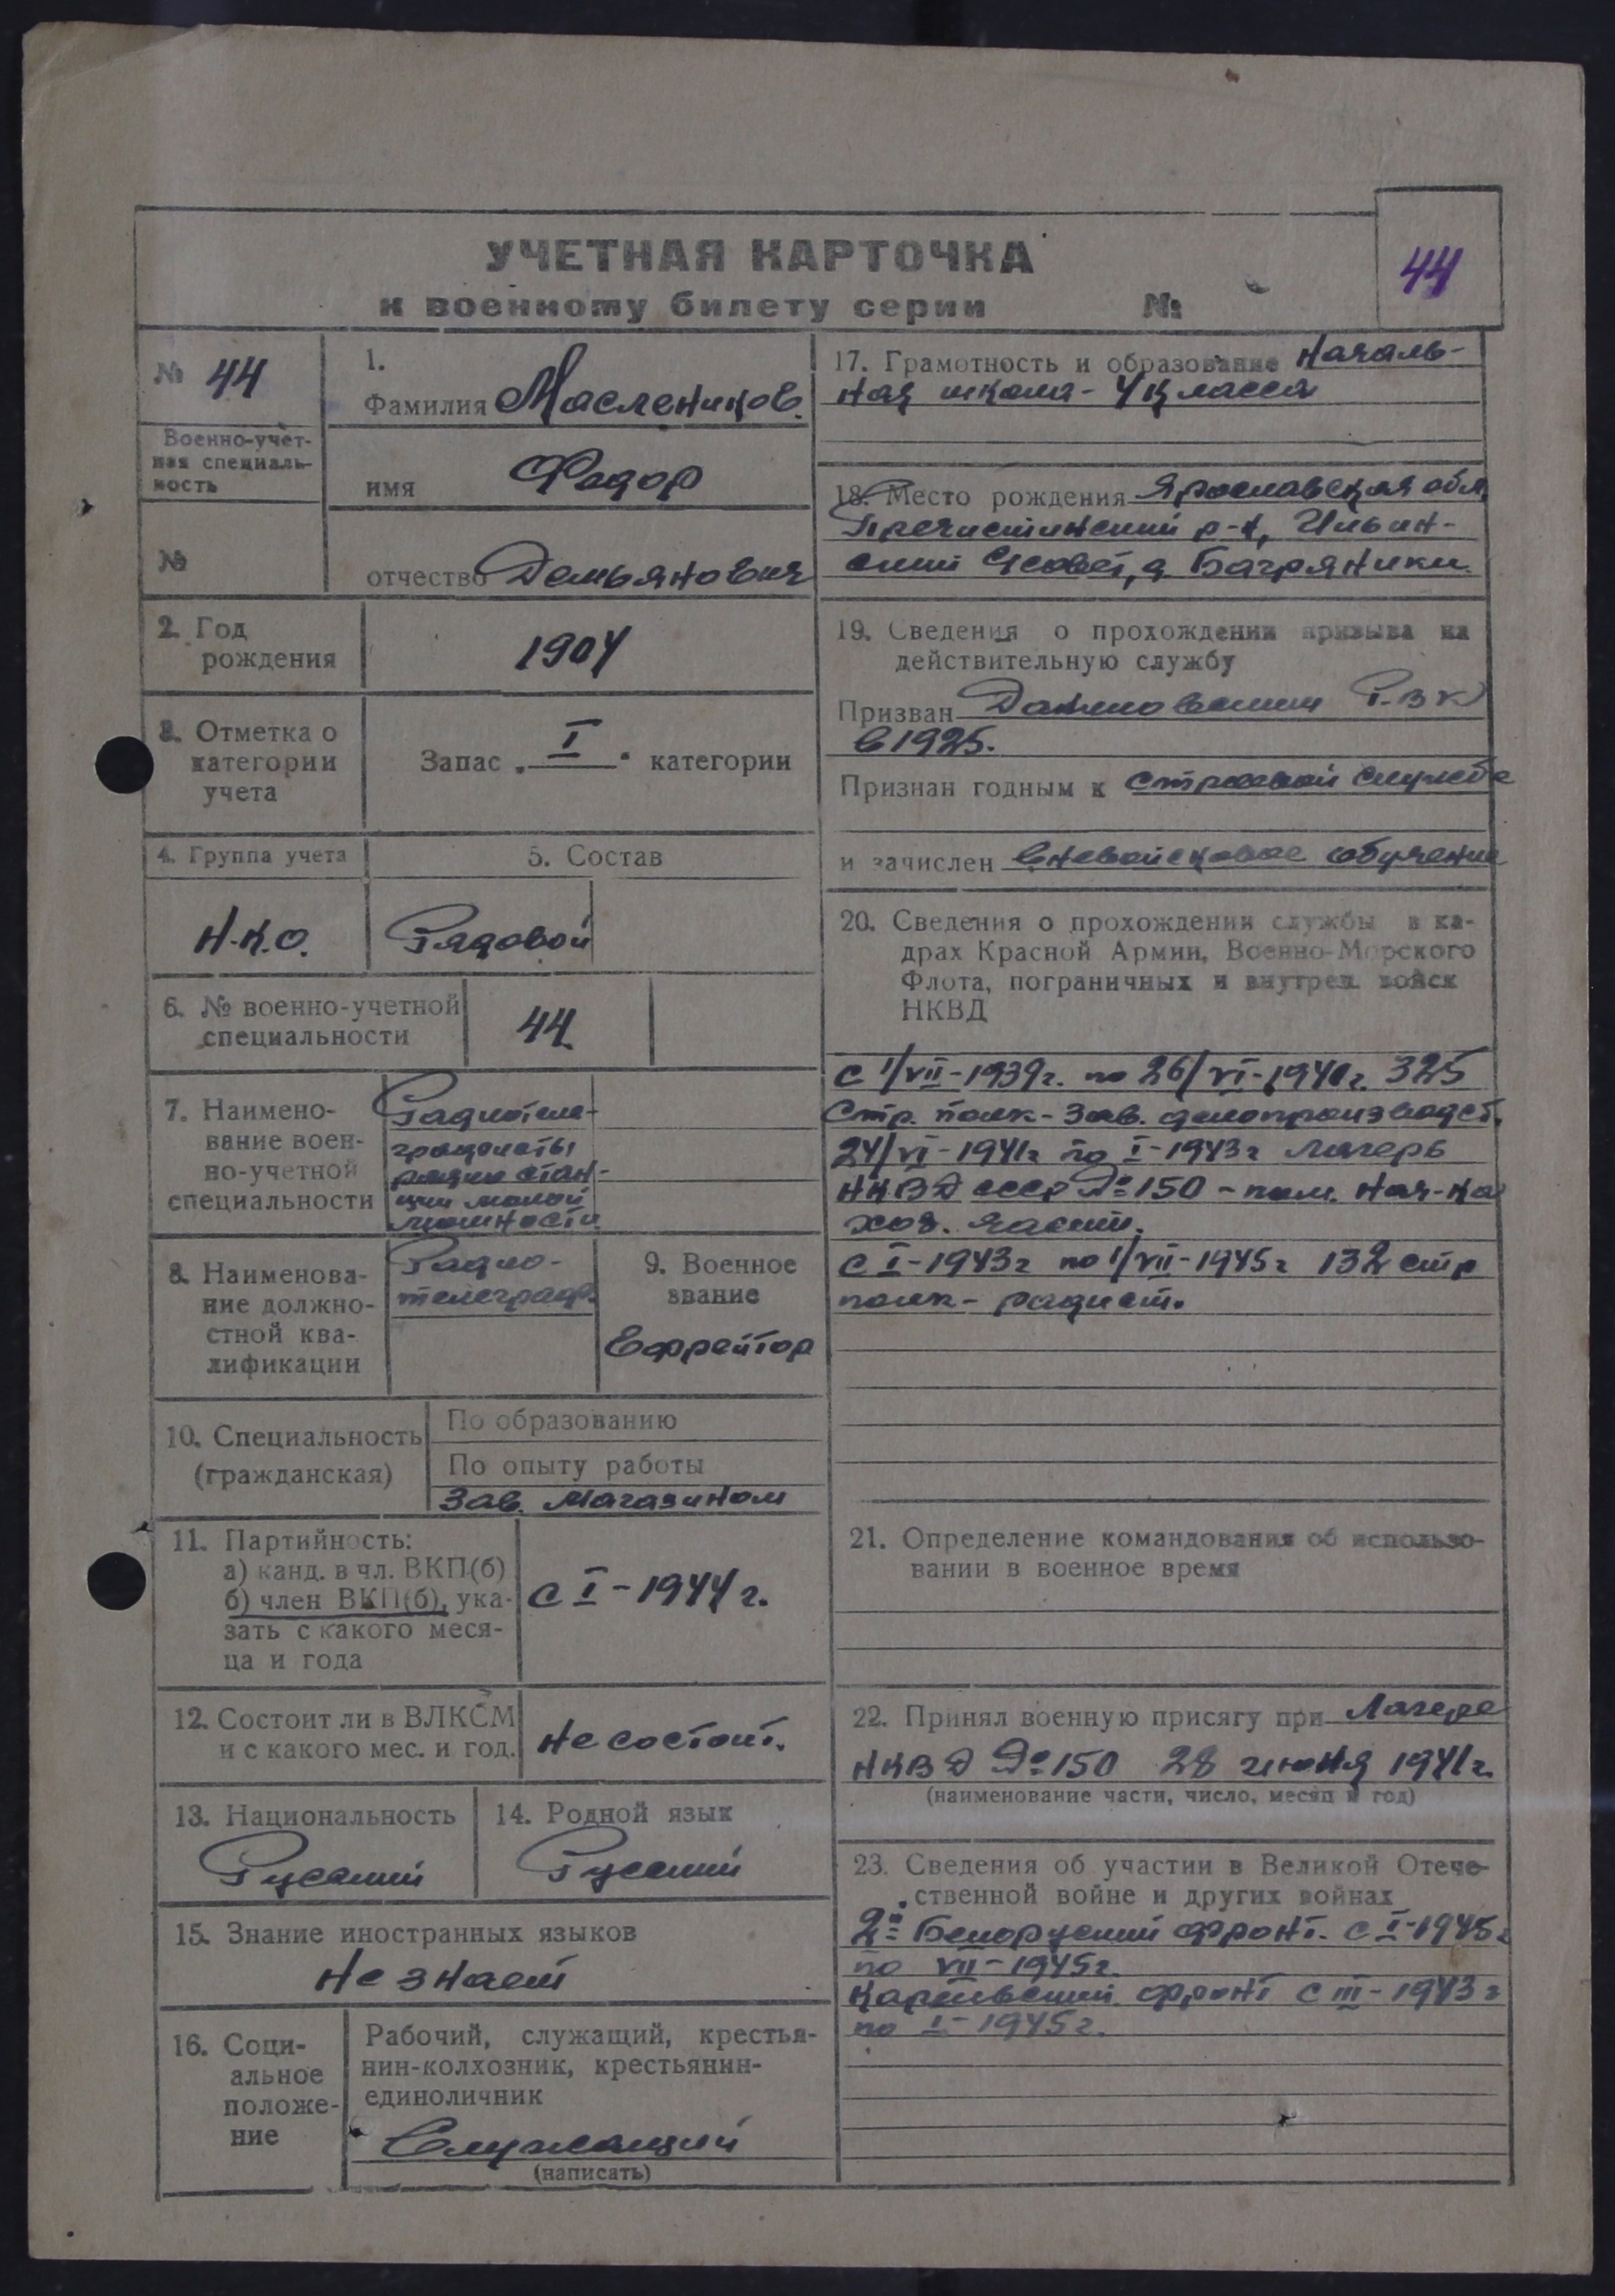 УЧЕТНАЯ КАРТОЧКА
к военному билету серии №
44
№ 44
Военно-учет-
ная специаль-
ность
№
1.
Фамилия Маслеников.
имя Федор
отчество Демьянович
2. Год
рождения
1904
3. Отметка о
категории
учета
Запас „I“ категории
4. Группа учета
5. Состав
Н.К.О.
Рядовой
6. № военно-учетной
специальности
44.
7. Наимено-
вание воен-
но-учетной
специальности
Радиотеле-
графисты
радио стан-
ции малой
мощности
8. Наименова-
ние должно-
стной ква-
лификации
Радио-
телеграф.
9. Военное
звание
Ефрейтор
10. Специальность
(гражданская)
По образованию
По опыту работы
Зав. Магазином
11. Партийность:
а) канд. в чл. ВКП(б)
б) член ВКП(б), ука-
зать с какого меся-
ца и года
с I-1944 г.
12. Состоит ли в ВЛКСМ
и с какого мес. и год.
Не состоит.
13. Национальность
Русский
14. Родной язык
Русский
15. Знание иностранных языков
Не знает
16. Соци-
альное
положе-
ние
Рабочий, служащий, крестья-
нин-колхозник, крестьянин-
единоличник
Служащий
(написать)
17. Грамотность и образование Началь-
ная школа - 4 класса
18. Место рождения Ярославская обл
Пречистинский р-н, Ильин-
ский С/совет, д. Багряники.
19. Сведения о прохождении призыва на
действительную службу
Призван Р.В.К
в 1925.
Признан годным к строевой службе
и зачислен Вневойсковое обучение
20. Сведения о прохождении службы в ка-
драх Красной Армии, Военно-Морского
Флота, пограничных и внутрен. войск
НКВД
с 1/VII-1939г. по 26/VI-1940г. 325
Стр. полк - Зав. делопроизводст.
24/VI-1941г по I-1943г лагерь
НКВД СССР №150 - пом. Нач-ка
хоз. части.
с I-1943г по 1/VII-1945г 132 стр
полк - радист.
21. Определение командования об использо-
вании в военное время
22. Принял военную присягу при Лагере
НКВД №150 28 июня 1941г.
(наименование части, число, месяц и год)
23. Сведения об участии в Великой Отече-
ственной войне и других войнах
2й Белоруский фронт. с I-1945г
по VII-1945г.
Карельский фронт с III-1943г
по I-1945г.